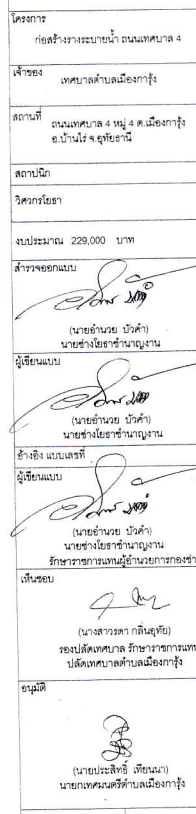 โครงการ
ก่อสร้างรางระบายน้ำ ถนนเทศบาล 4
เจ้าของ
เทศบาลตำบลเมืองการุ้ง
สถานที่
ถนนเทศบาล 4 หมู่ 4 ต.เมืองการุ้ง
อ.บ้านไร่ จ.อุทัยธานี
สถาปนิก
วิศวกรโยธา
งบประมาณ 229,000 บาท
สำรวจออกแบบ
(นายอำนวย บัวคำ)
นายช่างโยธาชำนาญงาน
ผู้เขียนแบบ
(นายอำนวย บัวคำ)
นายช่างโยธาชำนาญงาน
อ้างอิง แบบเลขที่
ผู้เขียนแบบ
(นายอำนวย บัวคำ)
นายช่างโยธาชำนาญงาน
รักษาราชการแทนผู้อำนวยการกองช่า
เห็นชอบ
(นางสาวรดา กลิ่นอุทัย)
รองปลัดเทศบาล รักษาราชการแทน
ปลัดเทศบาลตำบลเมืองการุ้ง
อนุมัติ
(นายประสิทธิ์ เทียนนา)
นายกเทศมนตรีตำบลเมืองการุ้ง